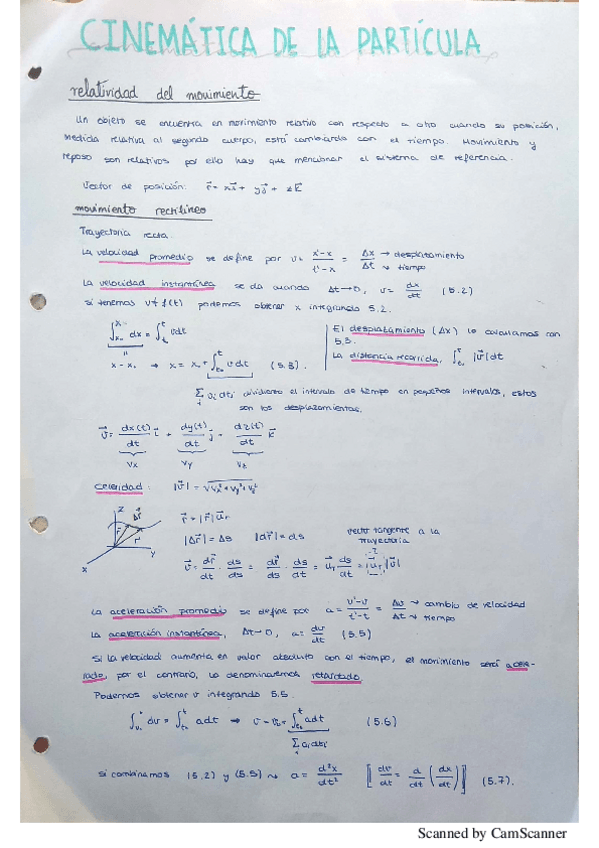 CINEMÁTICA DE LA PARTÍCULA
relatividad del movimiento
Un objeto se encuentra en movimiento relativo con respecto a otro cuando su posición,
medida relativa al segundo cuerpo, está cambiando con el tiempo. Movimiento y
reposo son relativos por ello hay que mencionar el sistema de referencia.
Vector de posición: r⃗ = xi⃗ + yj⃗ + zk⃗
movimiento rectilíneo
Trayectoria recta.
La velocidad promedio se define por v = (x'-x)/(t'-t) = Δx/Δt → desplazamiento → tiempo
La velocidad instantánea se da cuando Δt→0, v = dx/dt (5.2)
si tenemos v=f(t) podemos obtener x integrando 5.2.
∫ₓ₀ˣ dx = ∫ₜ₀ᵗ vdt
x - x₀ → x = x₀ + ∫ₜ₀ᵗ vdt (5.3)
El desplazamiento (Δx) lo calculamos con
5.3.
La distancia recorrida, ∫ₜ₀ᵗ |v|dt
Σᵢ vᵢ dtᵢ dividiendo el intervalo de tiempo en pequeños intervalos, estos
son los desplazamientos.
v⃗ = dx(t)/dt i⃗ + dy(t)/dt j⃗ + dz(t)/dt k⃗
vx vy vz
celeridad: |v⃗| = √(vx²+vy²+vz²)
z Δr⃗ r⃗ x y
r⃗ = |r⃗| u⃗r
|Δr⃗| = Δs |dr⃗| = ds
vector tangente a la
trayectoria
v⃗ = dr⃗/dt · ds/ds = dr⃗/ds · ds/dt = u⃗T ds/dt = |u⃗T| |v⃗|
La aceleración promedio se define por a = (v'-v)/(t'-t) = Δv/Δt → cambio de velocidad → tiempo
La aceleración instantánea, Δt→0, a = dv/dt (5.5)
Si la velocidad aumenta en valor absoluto con el tiempo, el movimiento será acele-
rado, por el contrario, lo denominaremos retardado.
Podemos obtener v integrando 5.5.
∫ᵥ₀ᵛ dv = ∫ₜ₀ᵗ adt → v - v₀ = ∫ₜ₀ᵗ adt (5.6)
Σᵢ aᵢdtᵢ
si combinamos (5.2) y (5.5) → a = d²x/dt² [dv/dt = d/dt (dx/dt)] (5.7).
Scanned by CamScanner